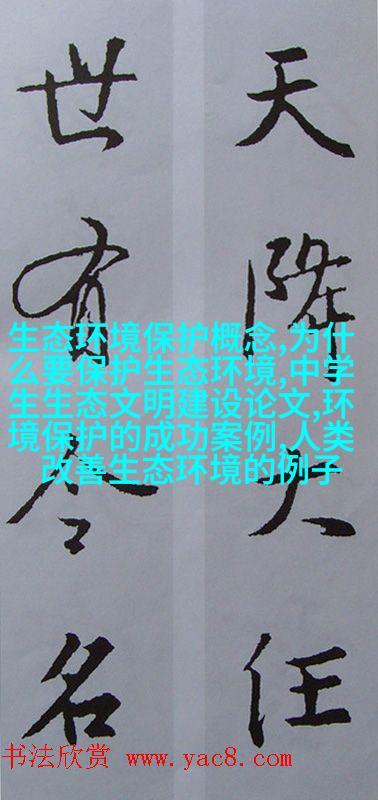 天降大任
世有令名
生态环境保护概念,为什
么要保护生态环境,中学
生生态文明建设论文,环
境保护的成功案例,人类
改善生态环境的例子
书法欣赏 www.yac8.com